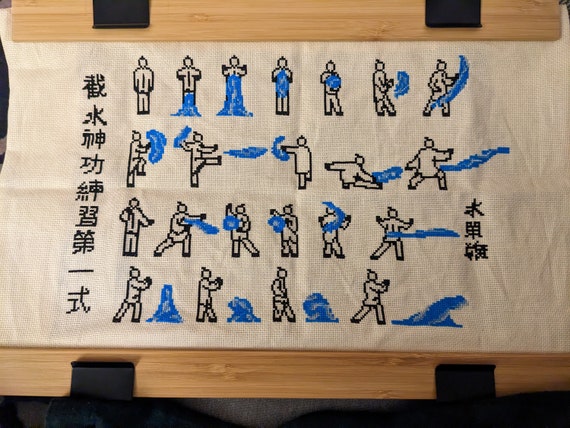 截水神功練習第一式
水